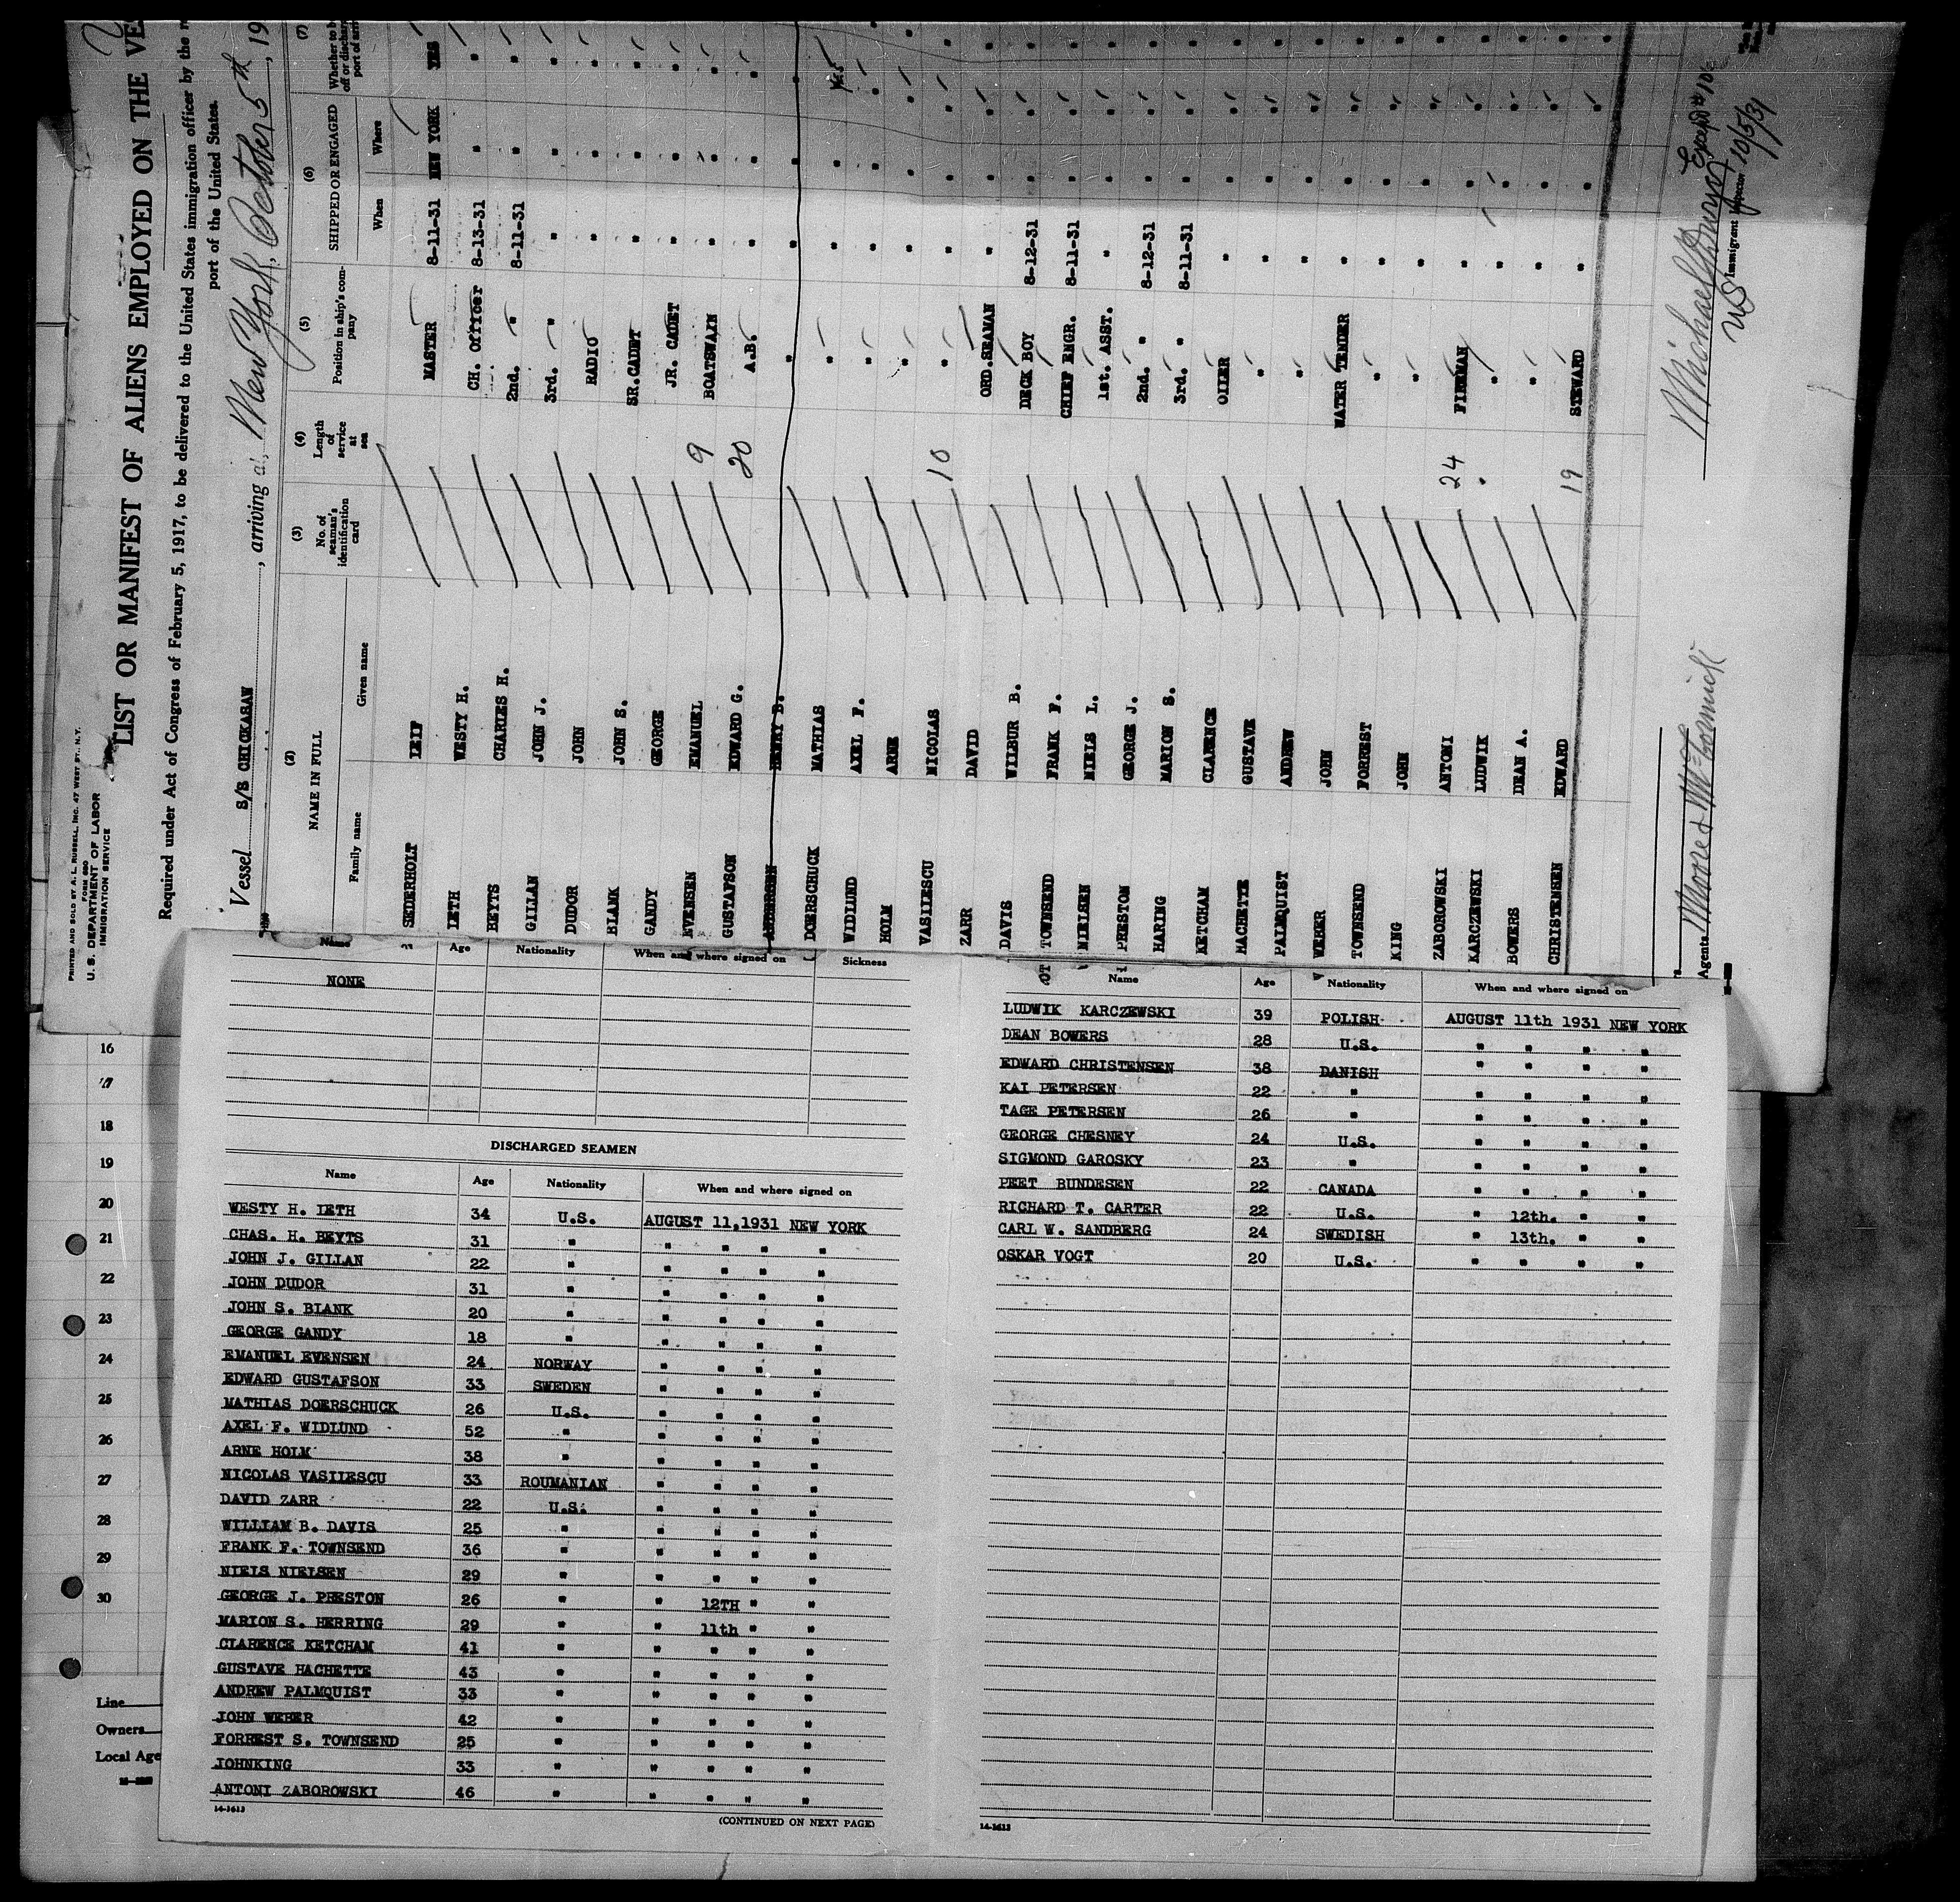 PRINTED AND SOLD BY A. L. RUSSELL, INC. 47 WEST ST. N.Y.
FORM 680
U. S. DEPARTMENT OF LABOR
IMMIGRATION SERVICE
LIST OR MANIFEST OF ALIENS EMPLOYED ON THE VE
Required under Act of Congress of February 5, 1917, to be delivered to the United States immigration officer by the
port of the United States.
Vessel S/S CHICKASAW, arriving at New York, October 5th, 19
(2) (3) (4) (5) (6) (7)
NAME IN FULL No. of seaman's identification card Length of service at sea Position in ship's company SHIPPED OR ENGAGED Whether to be off or dischar port of arri
Family name Given name When Where
SEDERHOLT LEIF MASTER 8-11-31 NEW YORK YES
IETH WESTY H. CH. Officer 8-13-31 "
BETTS CHARLES H. 2nd. " 8-11-31 " "
GILLAN JOHN J. 3rd. " " " "
DUDOR JOHN RADIO " " "
BLANK JOHN S. SR.CADET " " "
GANDY GEORGE JR. CADET " " "
EVENSEN EMANUEL 9 BOATSWAIN " " "
GUSTAFSON EDWARD G. 20 A.B. " " "
ANDERSEN HENRY B. " " " "
DOERSCHUCK MATHIAS " " " yes
WIDLUND AXEL F. " " " "
HOLM ARNE " " " "
VASILESCU NICOLAS 10 " " " "
ZARR DAVID ORD.SEAMAN " " "
DAVIS WILBUR B. DECK BOY 8-12-31 " "
TOWNSEND FRANK F. CHIEF ENGR. 8-11-31 " "
NIELSEN NIELS L. 1st. ASST. " " "
PRESTON GEORGE J. 2nd. " 8-12-31 " "
HARING MARION S. 3rd. " 8-11-31 " "
KETCHAM CLARENCE OILER " " "
HACHETTE GUSTAVE " " " "
PALMQUIST ANDREW " " " "
WEBER JOHN WATER TENDER " " "
TOWNSEND FORREST " " " "
KING JOHN " " " "
ZABOROWSKI ANTONI 24 FIREMAN " " "
KARCZEWSKI LUDWIK " " " " "
BOWERS DEAN A. " " " "
CHRISTENSEN EDWARD 19 STEWARD " " "
Agents Moore & McCormick
Immigrant Inspector
10/5/31
Name Age Nationality When and where signed on Sickness
NONE
DISCHARGED SEAMEN
Name Age Nationality When and where signed on
WESTY H. IETH 34 U.S. AUGUST 11,1931 NEW YORK
CHAS. H. BEYTS 31 " " " " "
JOHN J. GILLAN 22 " " " " "
JOHN DUDOR 31 " " " " "
JOHN S. BLANK 20 " " " " "
GEORGE GANDY 18 " " " " "
EMANUEL EVENSEN 24 NORWAY " " " "
EDWARD GUSTAFSON 33 SWEDEN " " " "
MATHIAS DOERSCHUCK 26 U.S. " " " "
AXEL F. WIDLUND 52 " " " " "
ARNE HOLM 38 " " " " "
NICOLAS VASILESCU 33 ROUMANIAN " " " "
DAVID ZARR 22 U.S. " " " "
WILLIAM B. DAVIS 25 " " " " "
FRANK F. TOWNSEND 36 " " " " "
NIELS NIELSEN 29 " " " " "
GEORGE J. PRESTON 26 " " 12TH " "
MARION S. HERRING 29 " " 11th " "
CLARENCE KETCHAM 41 " " " " "
GUSTAVE HACHETTE 43 " " " " "
ANDREW PALMQUIST 33 " " " " "
JOHN WEBER 42 " " " " "
FORREST S. TOWNSEND 25 " " " " "
JOHNKING 33 " " " " "
ANTONI ZABOROWSKI 46 " " " " "
14-1613
(CONTINUED ON NEXT PAGE)
Name Age Nationality When and where signed on
LUDWIK KARCZEWSKI 39 POLISH AUGUST 11th 1931 NEW YORK
DEAN BOWERS 28 U.S. " " " "
EDWARD CHRISTENSEN 38 DANISH " " " "
KAI PETERSEN 22 " " " " "
TAGE PETERSEN 26 " " " " "
GEORGE CHESNEY 24 U.S. " " " "
SIGMOND GAROSKY 23 " " " " "
PEET BUNDESEN 22 CANADA " " " "
RICHARD T. CARTER 22 U.S. " 12th. " "
CARL W. SANDBERG 24 SWEDISH " 13th. " "
OSKAR VOGT 20 U.S. " " " "
14-1613
16
17
18
19
20
21
22
23
24
25
26
27
28
29
30
Line
Owners
Local Age